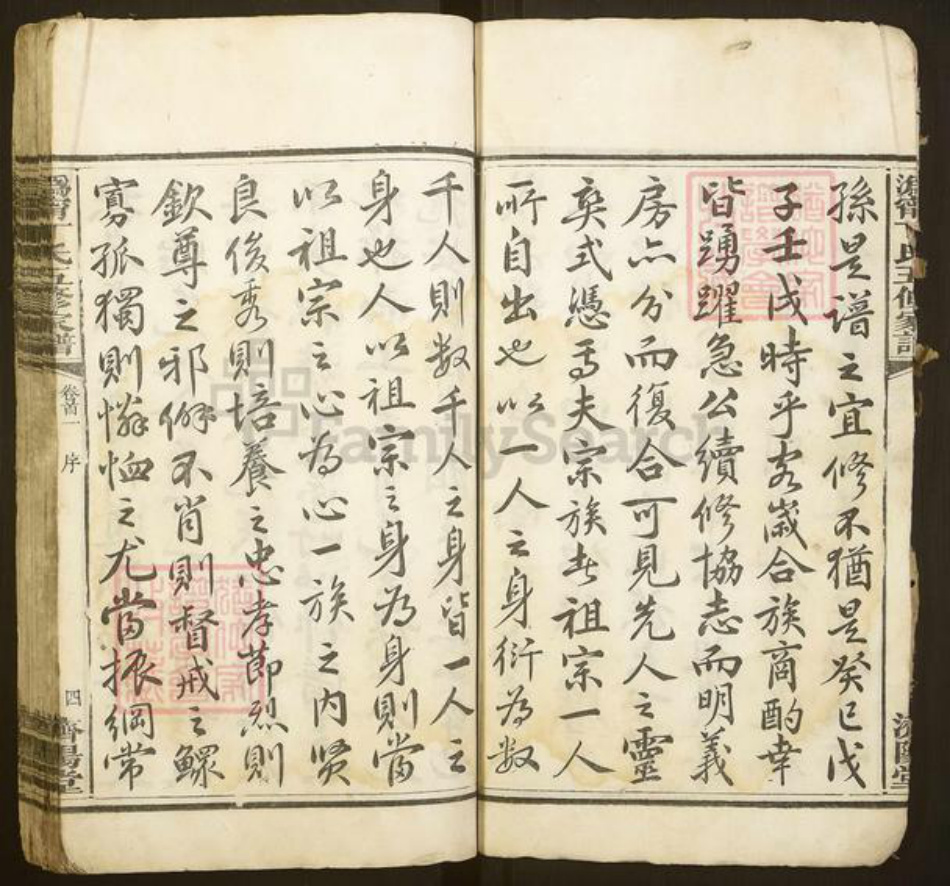 孫是譜之宜修不猶是癸巳戊
子壬戌時乎客嵗合族商酌幸
皆踴躍急公續修協志而明義
房亦分而復合可見先人之靈
奭式憑焉夫宗族者祖宗一人
所自出也以一人之身衍為数
千人則数千人之身皆一人之
身也人以祖宗之身為身則當
以祖宗之心為心一族之内贤
良俊秀則培養之忠孝節烈則
欽尊之邪僻不肖則督戒之鰥
寡孤獨則憐恤之尤當振綱常
五修家譜
卷首一
序
四
濟陽堂
FamilySearch